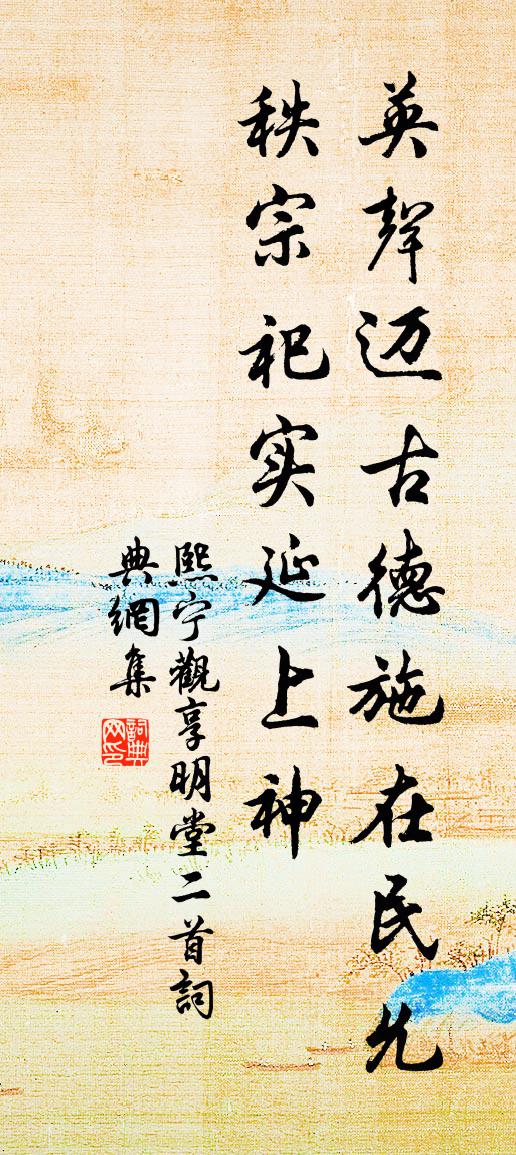 英聲迈古德施在民允
秩宗祀实延上神
熙宁觀享明堂二首詞
典網集
詞典
网印